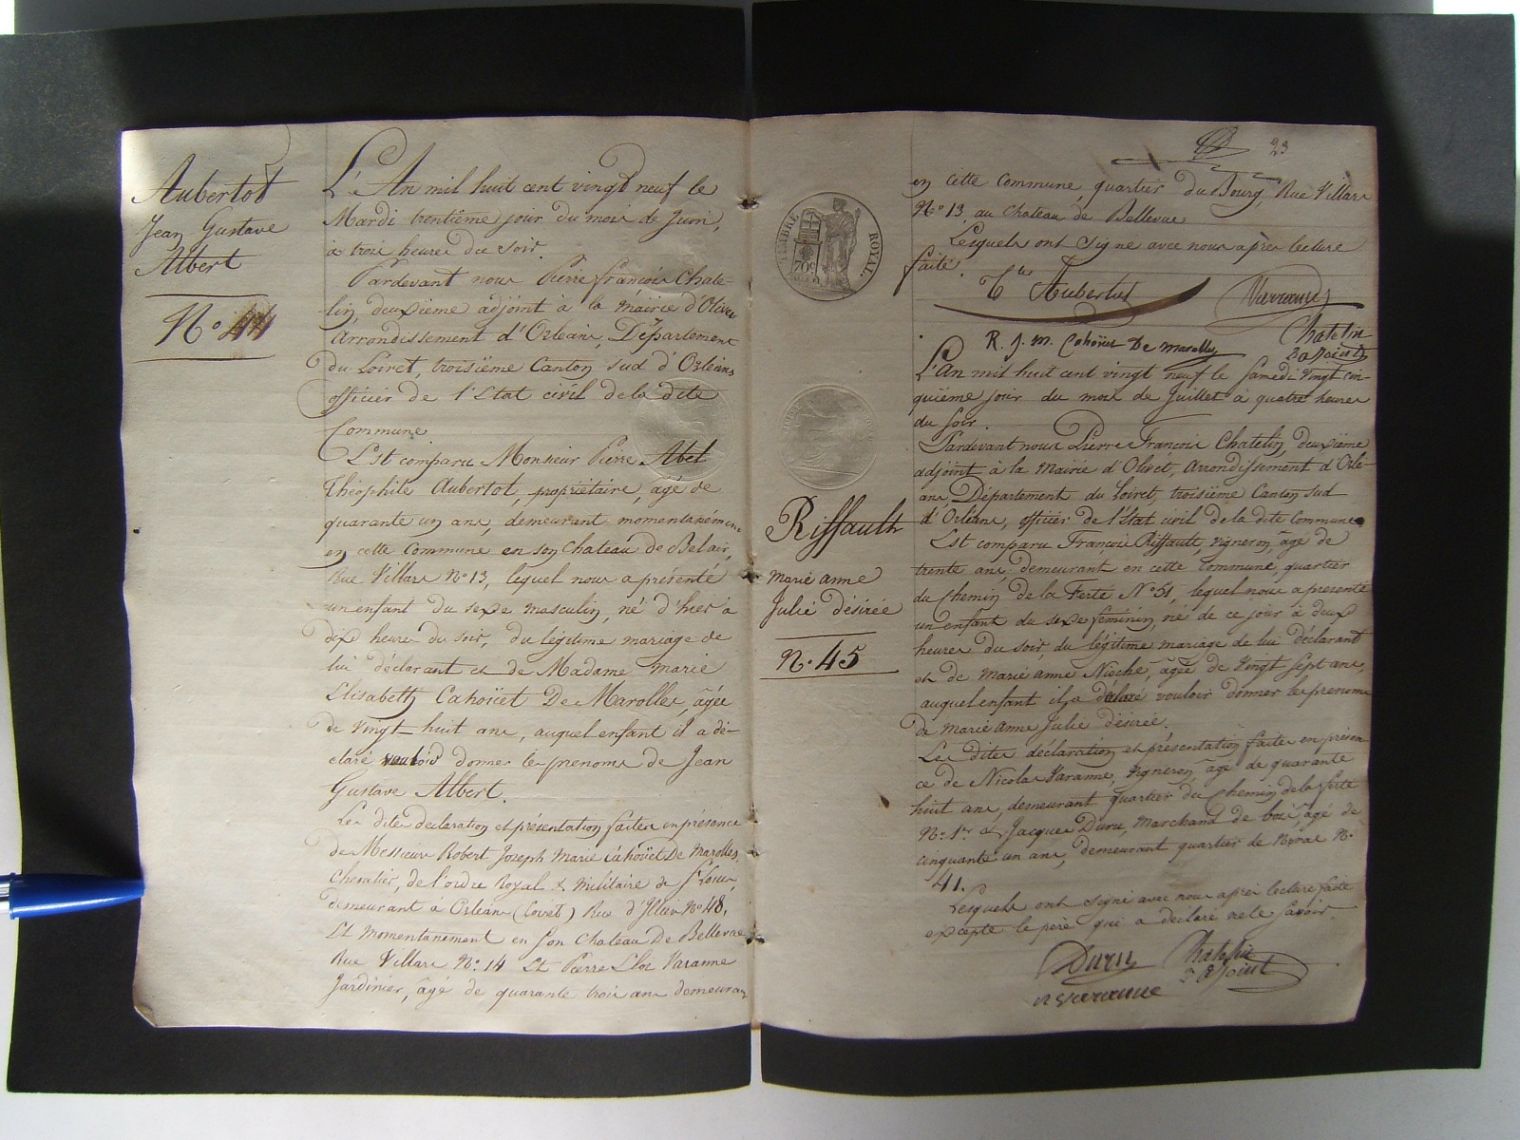 Aubertot
Jean Gustave
Albert
N° 44
L'An mil huit cent vingt neuf le
Mardi trentième jour du mois de Juin,
à trois heures du soir.
Pardevant nous Pierre françois Chate-
lin, deuxième adjoint à la Mairie d'Olivet
Arrondissement d'Orléans, Département
du Loiret, troisième Canton sud d'Orléans
officier de l'Etat civil de la dite
Commune
Est comparu Monsieur Pierre Abel
Théophile Aubertot, propriétaire, agé de
quarante un ans, demeurant momentanément
en cette Commune en son Chateau de Belair,
Rue Villars N° 13, lequel nous a présenté
un enfant du sexe masculin, né d'hier à
dix heures du soir, du légitime mariage de
lui déclarant et de Madame Marie
Elisabeth Cahoüet De Marolles, agée
de vingt-huit ans, auquel enfant il a dé-
claré vouloir donner les prenoms de Jean
Gustave Albert.
Les dites declaration et présentation faites en présence
de Messieurs Robert Joseph Marie Cahoüet De Marolles,
Chevalier, de l'ordre Royal & Militaire de St Louis,
demeurant à Orléans (Loiret) Rue d'Illiers N° 48,
Et momentanément en son Chateau De Bellevue
Rue Villars N° 14 Et Pierre Eloi Varanne
Jardinier, agé de quarante trois ans demeurant
23
TIMBRE ROYAL
70c
en cette Commune quartier du Bourg, Rue Villars
N° 13, au Chateau de Bellevue
Lesquels ont signé avec nous après lecture
faite.
Aubertot
Varanne
Chatelin
2e adjoint
R. J. M. Cahoüet De Marolles
L'An mil huit cent vingt neuf le samedi vingt cin-
quième jour du mois de Juillet à quatre heures
du soir.
Pardevant nous Pierre François Chatelin, deuxième
adjoint à la Mairie d'Olivet, arrondissement d'Orlé-
ans, Département du Loiret, troisième Canton sud
d'Orléans, officier de l'état civil de la dite Commune
Riffault
Marie anne
Julie désirée
N° 45
Est comparu François Riffault, vigneron, agé de
trente ans demeurant en cette Commune quartier
du Chemin de la Ferté N° 51, lequel nous a présenté
un enfant du sexe féminin, né de ce jour à deux
heures du soir, du légitime mariage de lui déclarant
et de Marie anne Nioche, agée de vingt sept ans,
auquel enfant il a déclaré vouloir donner les prenoms
de Marie Anne Julie désirée.
Les dites déclaration et présentation faites en présen-
ce de Nicolas Varanne, vigneron, agé de quarante
huit ans, demeurant quartier du Chemin de la ferté
N° 1er & Jacques Duru, Marchand de bois agé de
cinquante un ans, demeurant quartier de N°
41.
Lesquels ont signé avec nous après lecture faite
excepté le père qui a déclaré ne le savoir.
Duru
Chatelin
2e adjoint
N Varanne